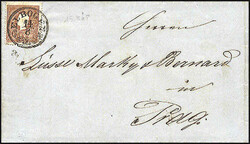 Herren
Lüsse Marky & Bernard
in
Prag.